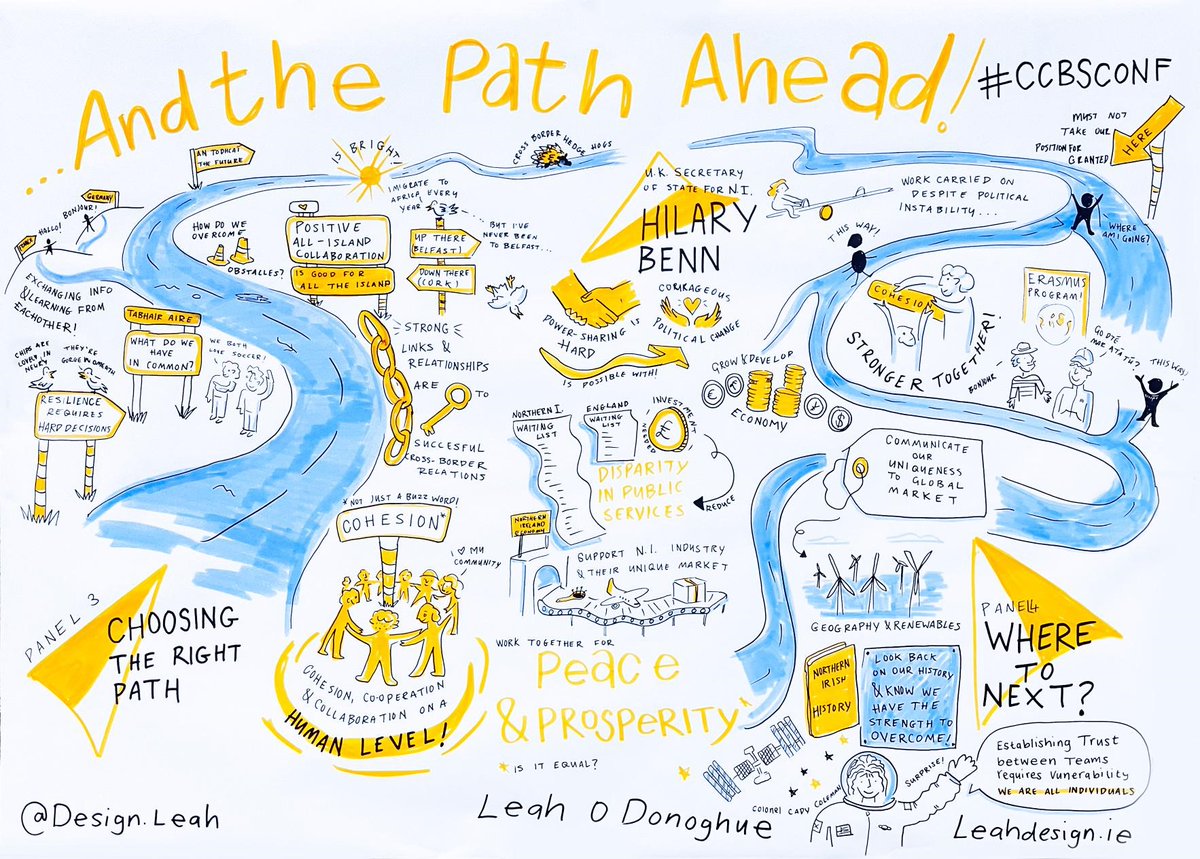 ...And the Path Ahead!
#CCBSCONF
MUST NOT
TAKE OUR
POSITION FOR
GRANTED
HERE
AN TODHCAÍ
THE FUTURE
IS BRIGHT!
CROSS BORDER HEDGE HOGS
GERMANY
BONJOUR!
HALLO!
EXCHANGING INFO
& LEARNING FROM
EACHOTHER!
HOW DO WE
OVERCOME
OBSTACLES?
POSITIVE
ALL-ISLAND
COLLABORATION
IS GOOD FOR
ALL THE ISLAND
I MIGRATE TO
AFRICA EVERY
YEAR
BUT I'VE
NEVER BEEN
TO BELFAST...
UP THERE
(BELFAST)
DOWN THERE
(CORK)
TABHAIR AIRE
WHAT DO WE
HAVE
IN COMMON?
WE BOTH
LOVE SOCCER!
CHIPS ARE
LOVELY IN
NEWRY
THEY'RE
GORGE IN OMEATH
RESILIENCE
REQUIRES
HARD DECISIONS
STRONG
LINKS &
RELATIONSHIPS
ARE
TO
SUCCESFUL
CROSS-BORDER
RELATIONS
*NOT JUST A BUZZ WORD!
COHESION*
I ♥ MY
COMMUNITY
COHESION, CO-OPERATION
& COLLABORATION ON A
HUMAN LEVEL!
PANEL 3
CHOOSING
THE RIGHT
PATH
U.K. SECRETARY
OF STATE FOR N.I.
HILARY
BENN
POWER-SHARING IS
HARD
COURAGEOUS
POLITICAL CHANGE
IS POSSIBLE WITH!
GROW & DEVELOP
ECONOMY
NORTHERN I.
WAITING
LIST
ENGLAND
WAITING
LIST
INVESTMENT
NEEDED
£
DISPARITY
IN PUBLIC
SERVICES
REDUCE
NORTHERN
IRELAND
ECONOMY
SUPPORT N.I. INDUSTRY
& THEIR UNIQUE MARKET
WORK TOGETHER FOR
Peace
& PROSPERITY*
* IS IT EQUAL?
WORK CARRIED ON
DESPITE POLITICAL
INSTABILITY...
THIS WAY!
WHERE
AM I GOING?
COHESION
STRONGER TOGETHER!
ERASMUS
PROGRAM!
GO DTÉ
MAR ATÁTÚ?
BONHUR
THIS WAY!
COMMUNICATE
OUR
UNIQUENESS
TO GLOBAL
MARKET
GEOGRAPHY & RENEWABLES
NORTHERN
IRISH
HISTORY
LOOK BACK
ON OUR HISTORY
& KNOW WE
HAVE THE
STRENGTH TO
OVERCOME!
PANEL 4
WHERE
TO
NEXT?
COLONEL CADY COLEMAN
SURPRISE!
Establishing Trust
between Teams
requires Vunerability
WE ARE ALL INDIVIDUALS
@Design.Leah
Leah O Donoghue
Leahdesign.ie